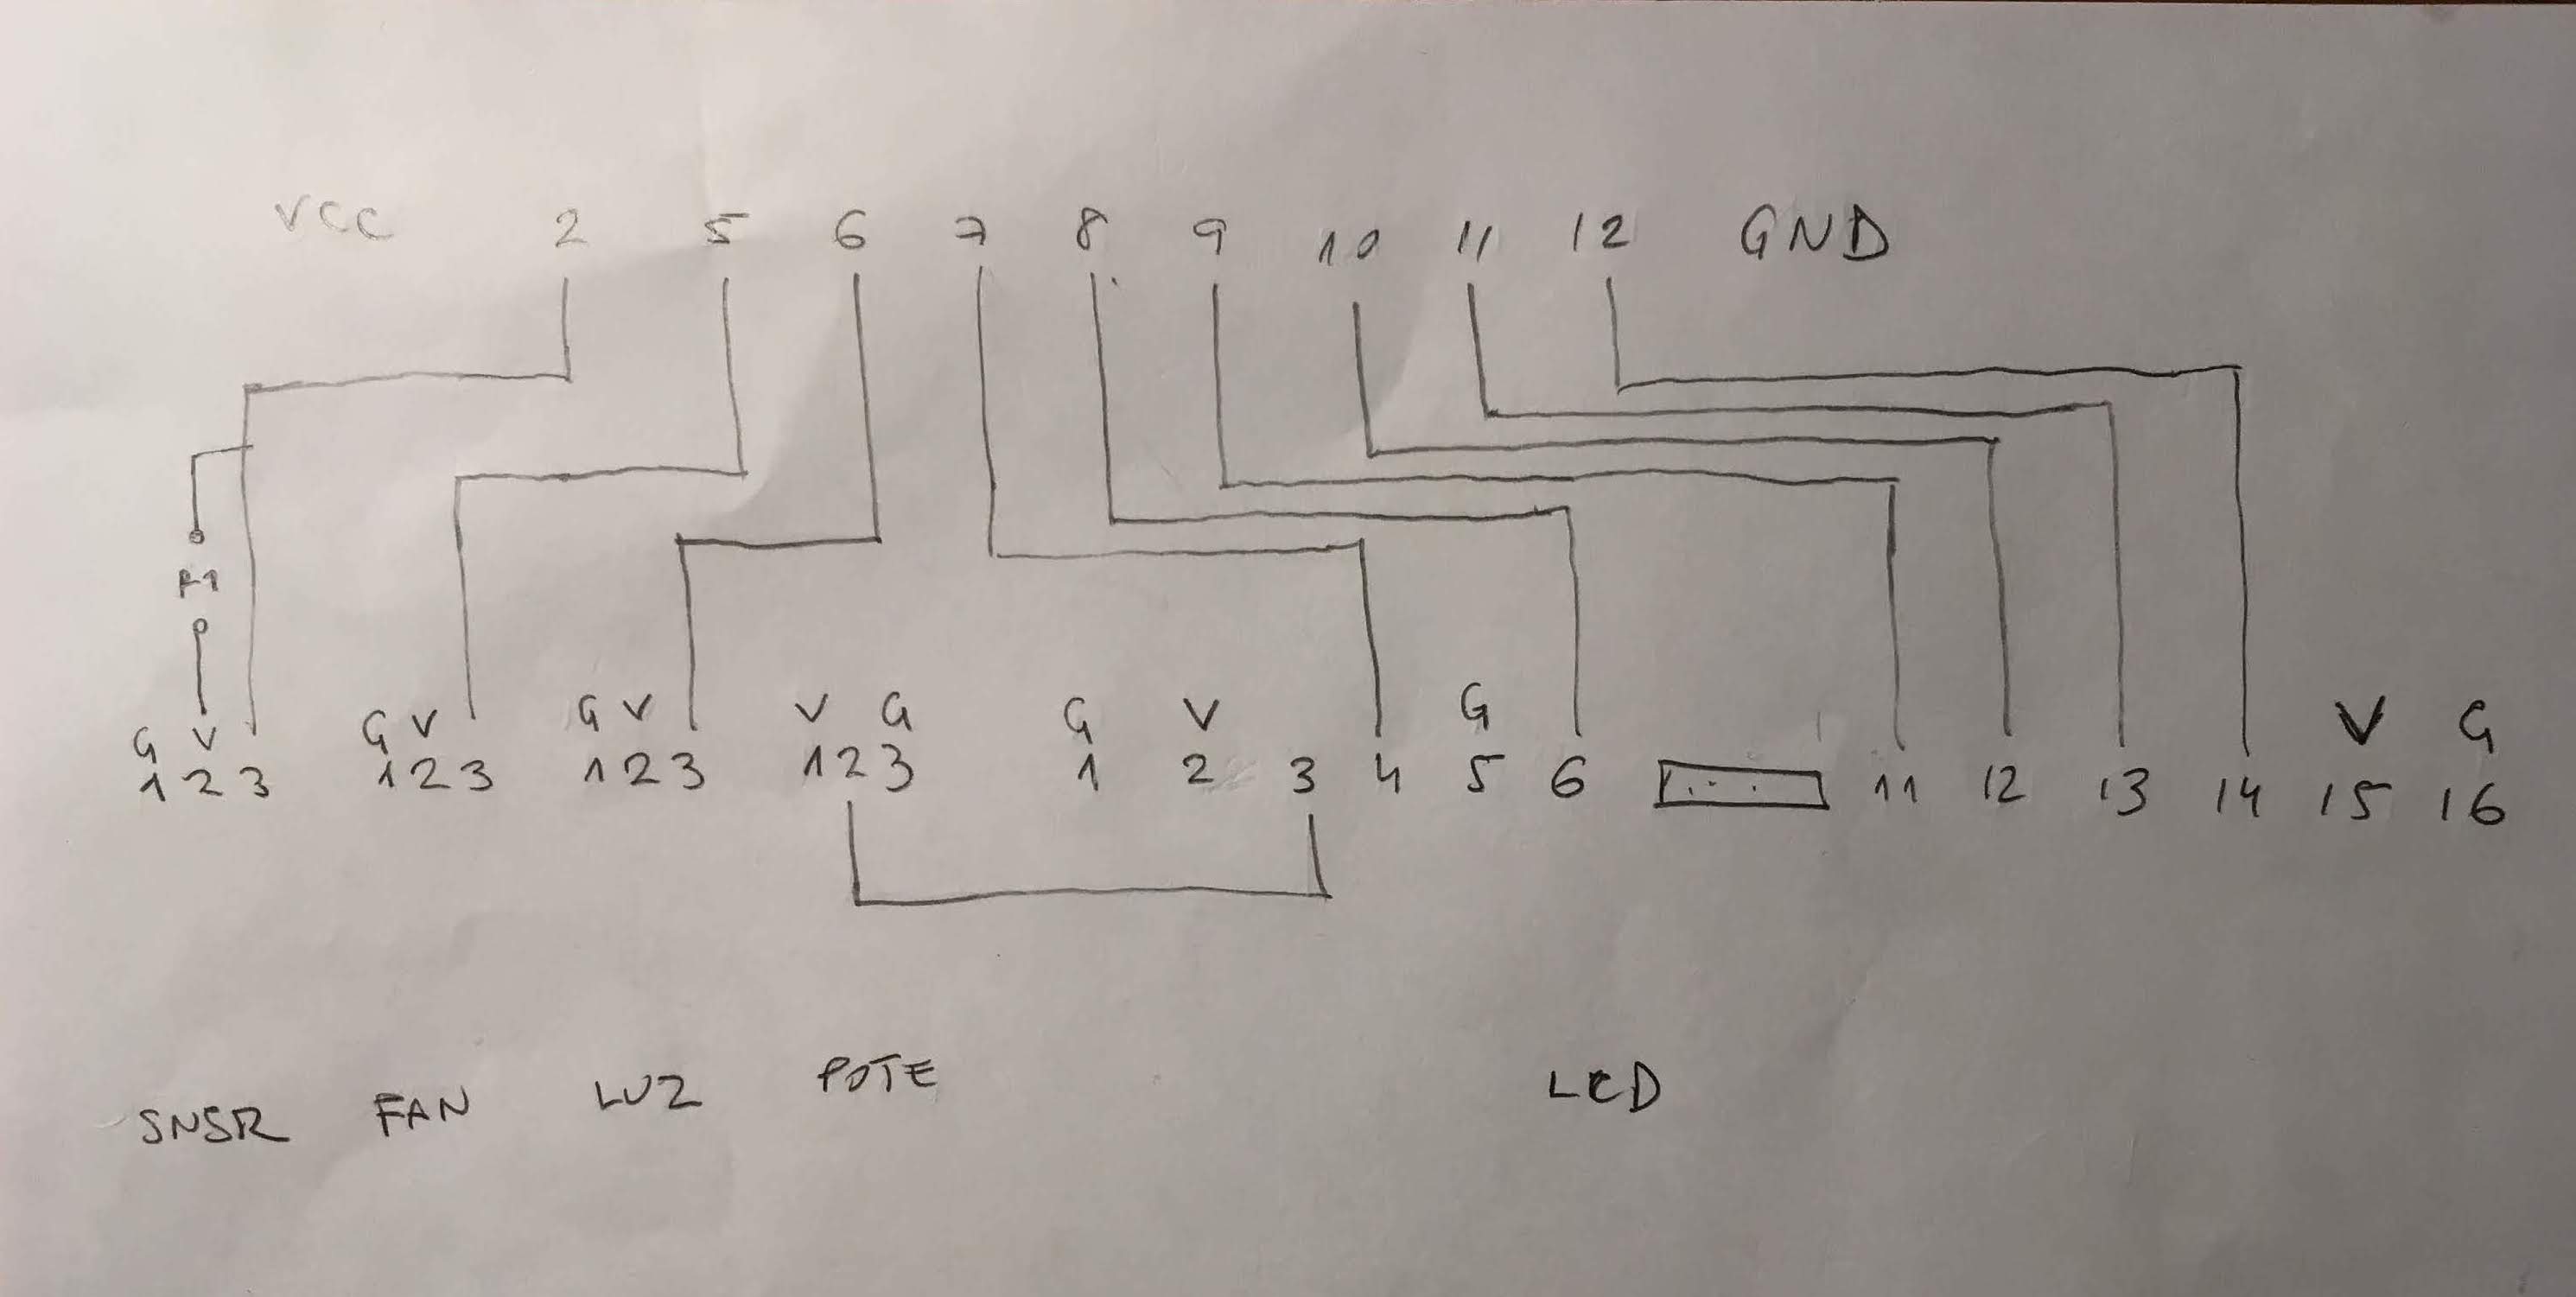 VCC 2 5 6 7 8 9 10 11 12 GND
R1
G V G V G V V G G V G V G
1 2 3 1 2 3 1 2 3 1 2 3 1 2 3 4 5 6 ... 11 12 13 14 15 16
SNSR FAN LUZ POTE LCD